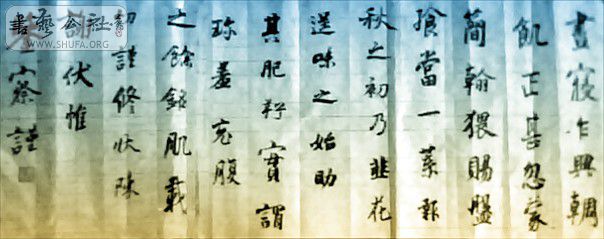 晝寢乍興輖
飢正甚忽蒙
簡翰猥賜盤
飧當一葉報
秋之初乃韭花
逞味之始助
其肥羜實謂
珍羞充腹
之餘銘肌載
切謹修狀陳
伏惟
察謹
書藝公社
WWW.SHUFA.ORG